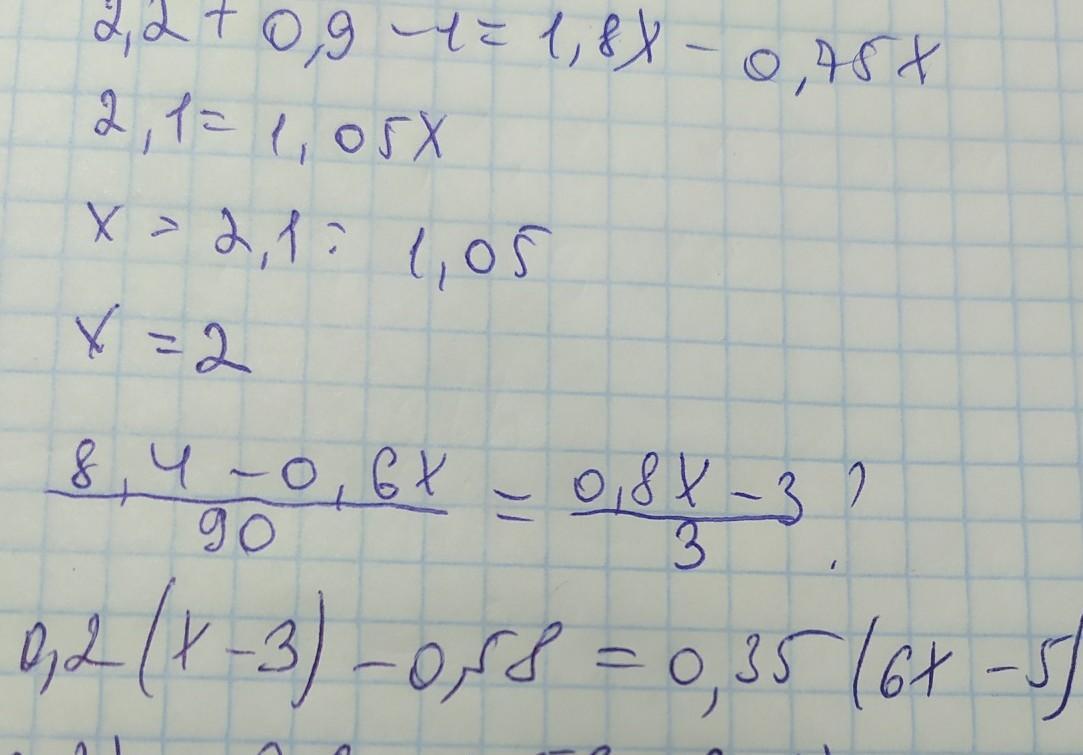 2,2 + 0,9 - 1 = 1,8x - 0,75x
2,1 = 1,05x
x = 2,1 : 1,05
x = 2
8,4 - 0,6x = 0,8x - 3 ?
90 3
0,2(x - 3) - 0,58 = 0,35(6x - 5)